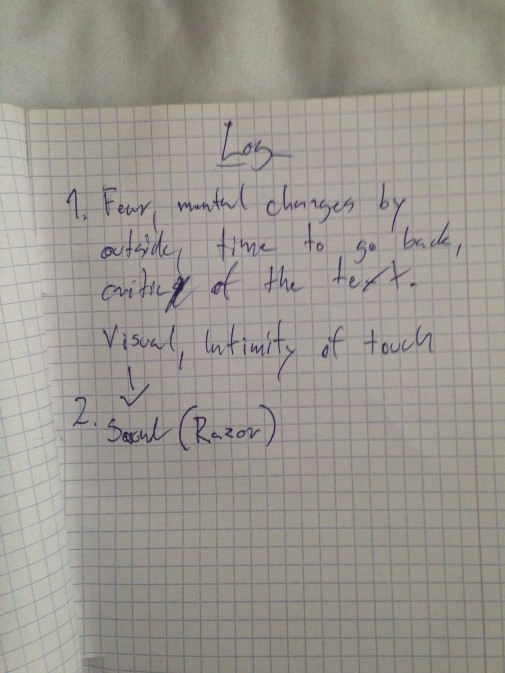 Log
1. Fear, mental changes by
outside, time to go back,
critic of the text.
Visual, Intimity of touch
2. (Razor)